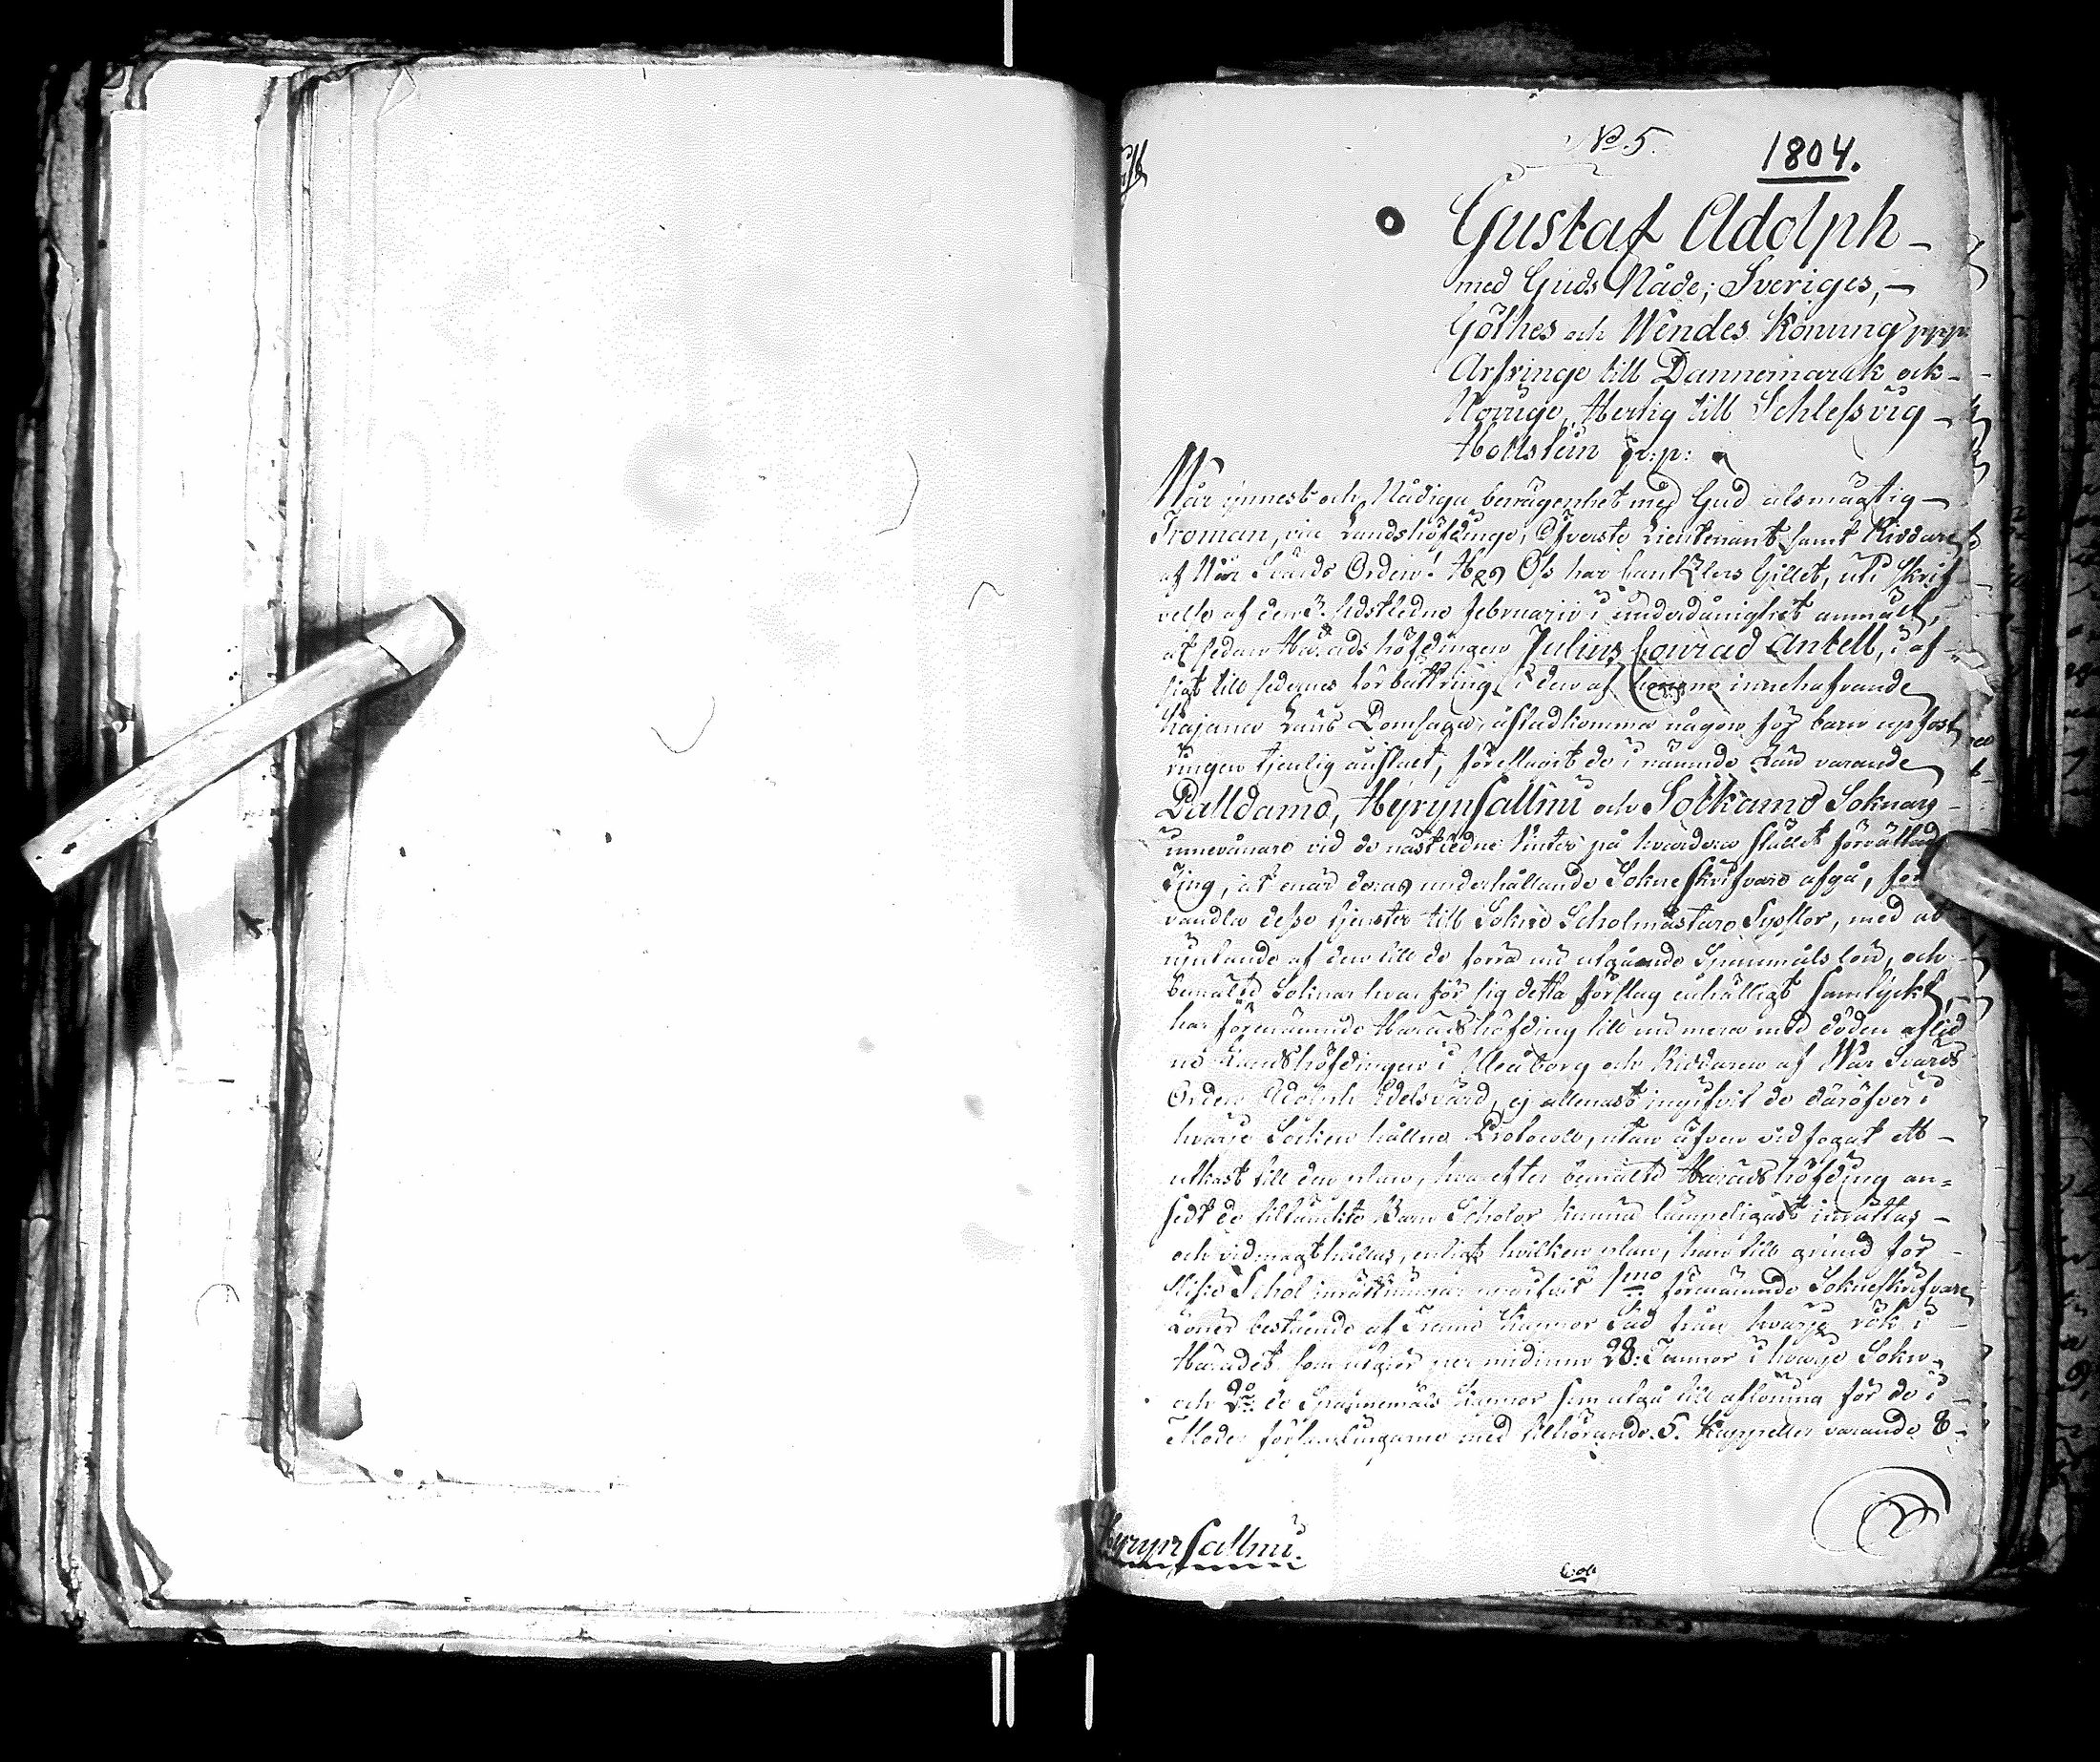 No. 5.
1804.
Gustaf Adolph
med Guds Nåde, Sveriges,
Göthes och Wendes Konung ppp:
Arfvinge till Dannemark och
Norrige, Hertig till Schlesvig
Hollstein p:p:
Wår ynnest och Nådiga benägenhet med Gud alsmägtig
Troman, vice Landshöfdinge, Öfverste Lieutenant samt Riddare
af Wår Svärds Orden! Hos Oss har Cantzlers Gillet, uti skrif
velse af den 3 sidstledne februarii i underdånighet anmält,
at sedan Häradshöfdingen Julius Conrad Antell, i af
sigt till sedernes förbättring i den af honom innehafvande
Kajana Läns Domsaga, åstadkomma någon för barn upfost
ringen tjenlig anstalt, föreslagit de i nämnde Län varande
Palldamo, Hyrynsallmi och Sotkamo Soknars
innevånare vid de nästledne Vinter på hvardera stället förrättade
Ting, at enär deras underhållande Sokneskrifvare afgå, för
vandla desse tjenster till Sokne Scholmästare Sysslor, med åt
njutande af den till de förra nu utgående Spannmåls lön, och
bemälte Soknar hvar för sig detta förslag enhälligt samtyckt,
har förenämnde Häradshöfding till nu mera med döden aflid
ne Landshöfdingen i Uleåborg och Riddaren af Wår Svärds
Orden Adolph Edelsvärd, ej allenast ingifvit de däröfver i
hvarje Socken hållne Protocoll, utan äfven vidfogat ett
utkast till den plan, hvarefter bemälte Häradshöfding an=
sedt de tilltänkte Barn Scholor kunna lämpeligast inrättas
och vidmagthållas, enligt hvilken plan, han till grund för
desse Schol inrättningar 1mo förenämnde Sokneskrifvare
Löner bestående af Kannor Säd från hvarje rök i
Häradet som utgör per medium 28: Tunnor i hvarje Sokn
och 2do de Spannemåls Kannor som utgå till aflöning för de i
Moder församlingarne med tillhörande 5. Kappeller varande 8
Hyrynsallmi.